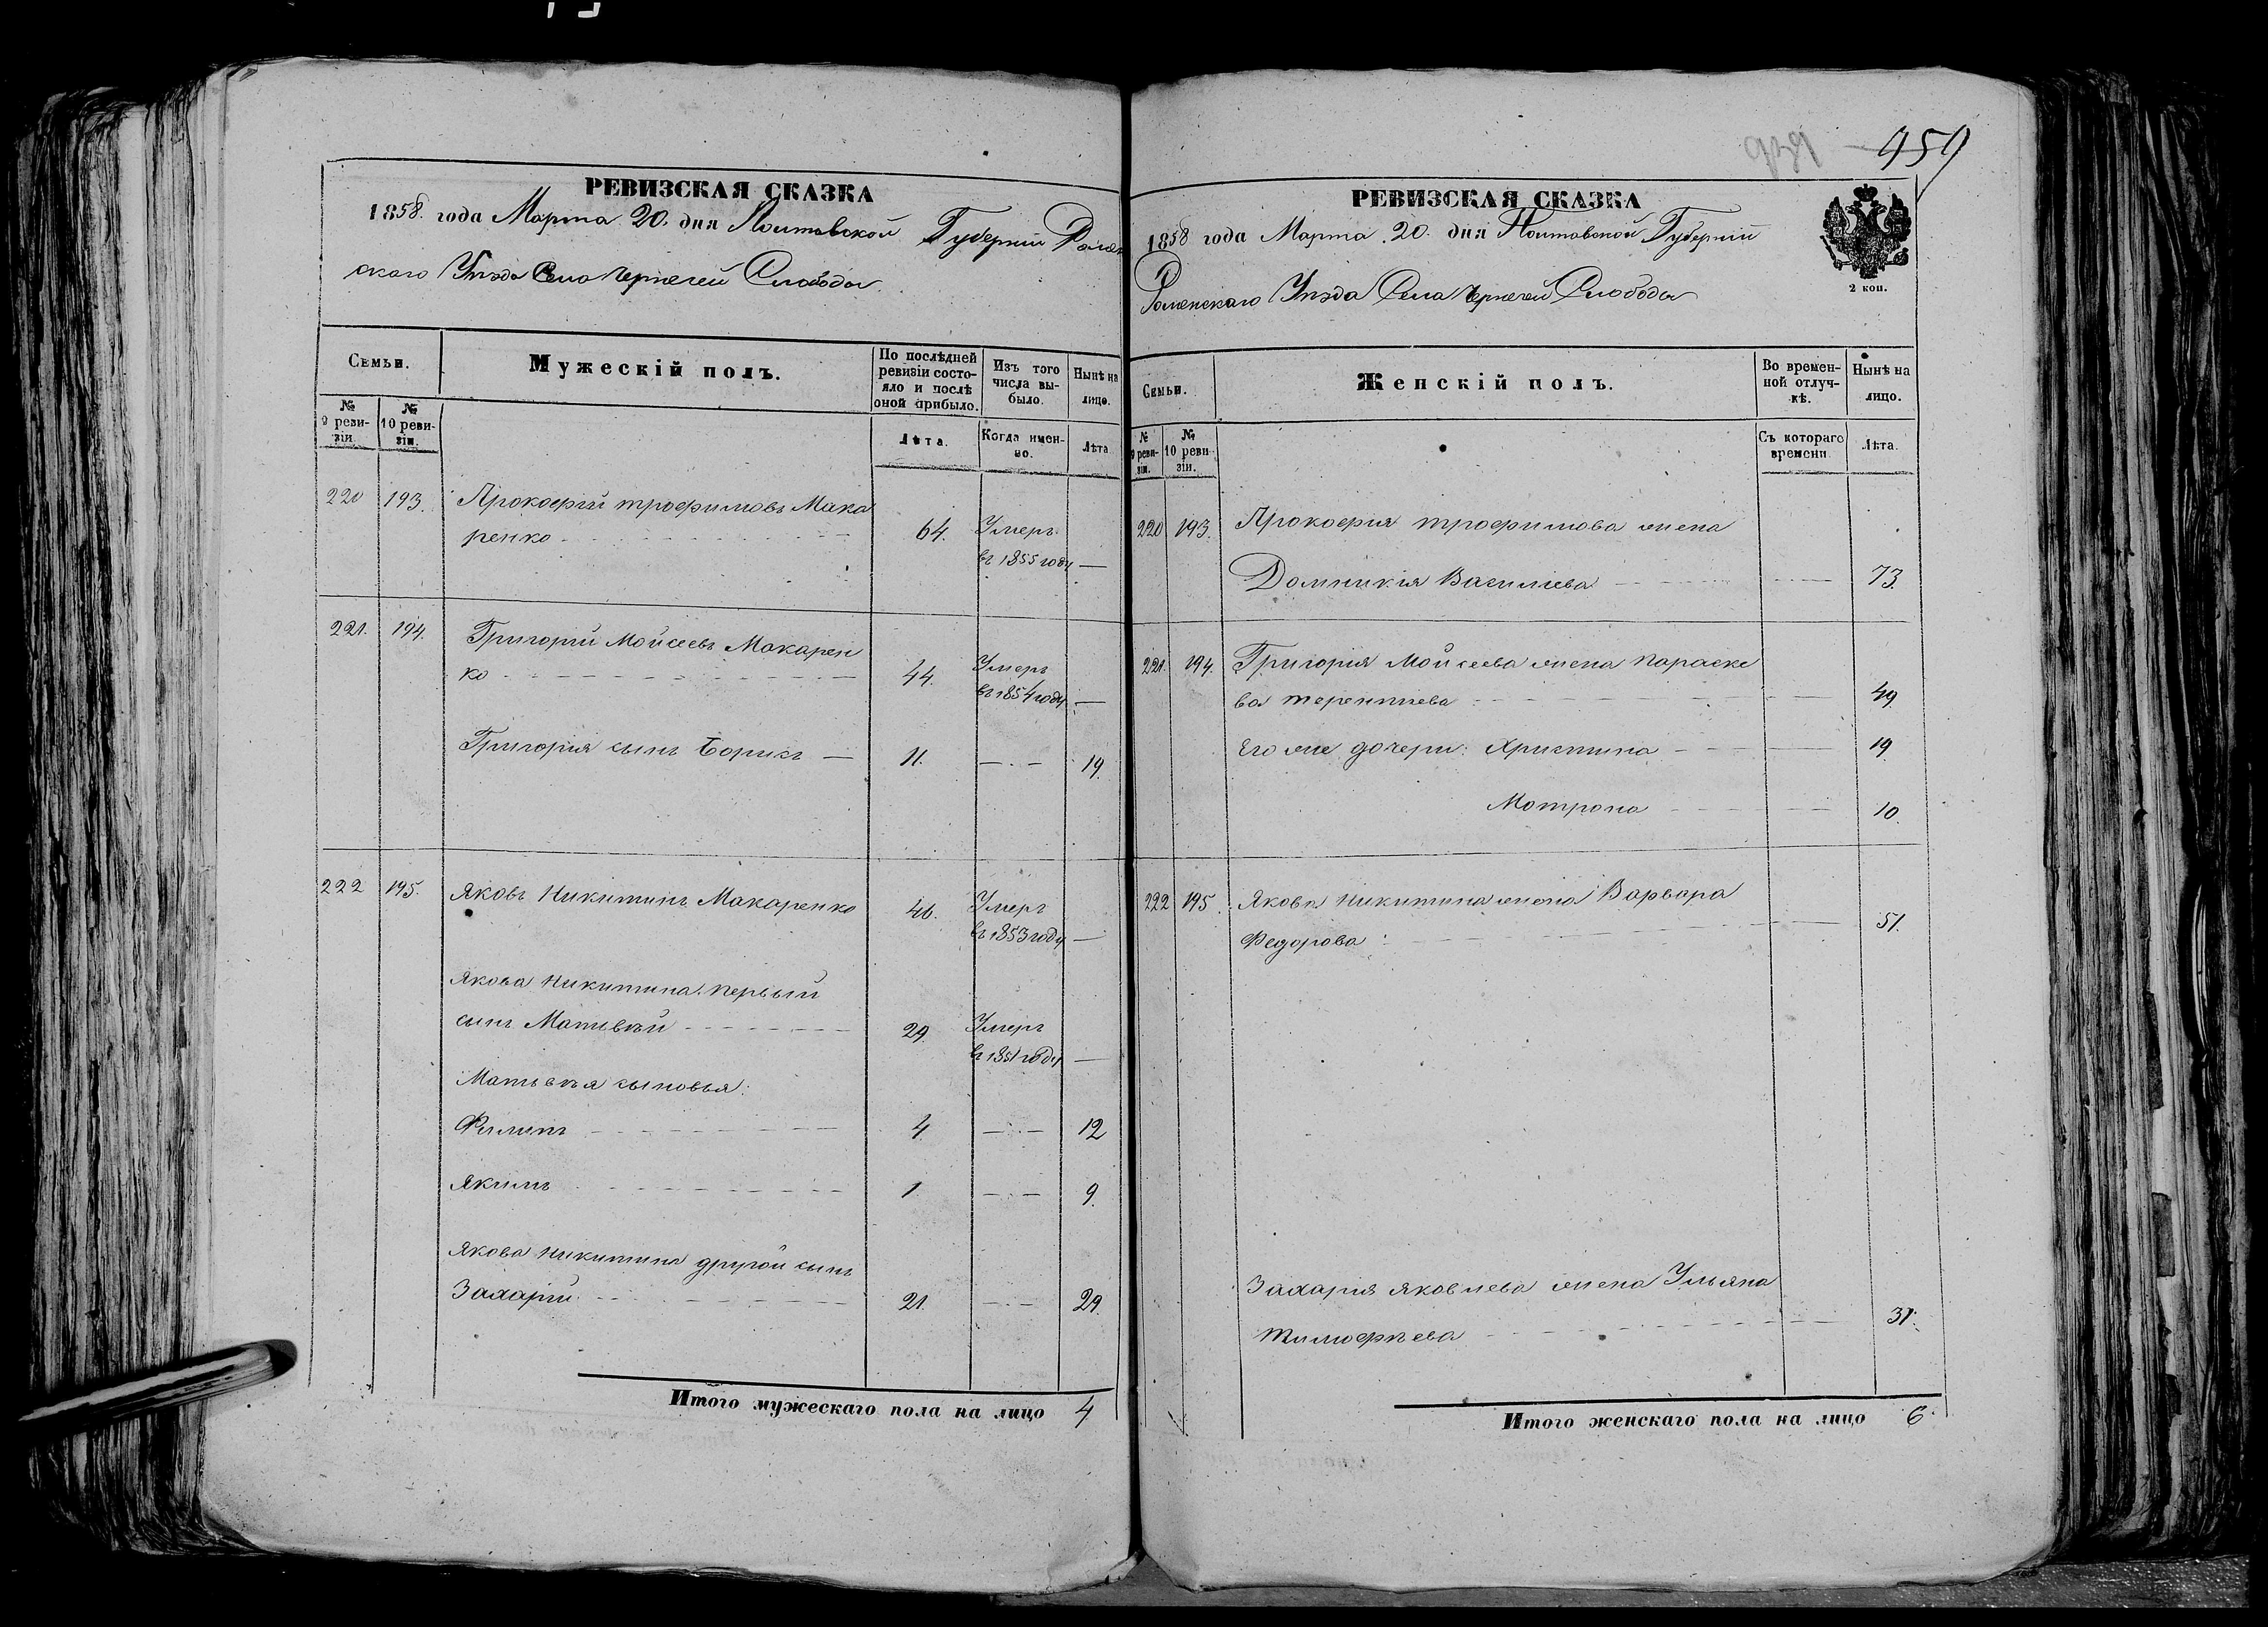 РЕВИЗСКАЯ СКАЗКА
1858. года Марта 20. дня Полтавской Губернии Ромен
скаго Уѣзда Села Чернечей Слободы
Семьи.
Мужескій полъ.
По послѣдней ревизіи состояло и послѣ оной прибыло.
Изъ того числа выбыло.
Нынѣ на лицо.
№ 9 ревизіи.
№ 10 ревизіи.
Лѣта.
Когда именно.
Лѣта
220 193. Прокофій Трофимовъ Мака
ренко 64. Умеръ
въ 1855 году —
221. 194. Григорій Мойсеевъ Макарен
ко 44. Умеръ
въ 1854 году —
Григорія сынъ Борисъ — 11. — 19.
222 195. Яковъ Никитинъ Макаренко 46. Умеръ
въ 1853 году —
Якова Никитина первый
сынъ Матвѣй 29. Умеръ
въ 1851 году —
Матвѣя сыновья:
Филипъ 4. — 12
Якимъ 1 — 9.
Якова Никитина другой сынъ
Захарій 21. — 29.
Итого мужескаго пола на лицо 4
959
РЕВИЗСКАЯ СКАЗКА
1858 года Марта 20. дня Полтавской Губерніи
Роменскаго Уѣзда Села Чернечей Слободы
2 коп.
Семьи.
Женскій полъ.
Во временной отлучкѣ.
Нынѣ на лицо.
№ 9 ревизіи.
№ 10 ревизіи.
Съ котораго времени
Лѣта.
220 193. Прокофія Трофимова жена
Домникія Василиева 73.
221. 194. Григорія Мойсеева жена Параске
ва Терентиева 49
Его же дочери: Христина 19
Мотрона 10.
222 195. Якова Никитина жена Варвара
Федорова 51.
Захарія Яковлева жена Ульяна
Тимофѣева 31.
Итого женскаго пола на лицо 6.